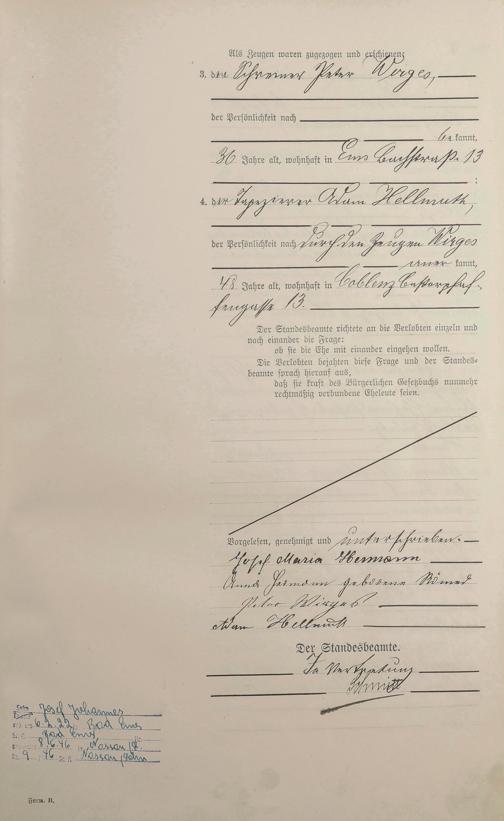 Als Zeugen waren zugezogen und erschienen:
3. der Schreiner Peter Wirges,
der Persönlichkeit nach
be kannt,
36 Jahre alt, wohnhaft in Ems Bachstraße 13
;
4. der Tapezierer Adam Hellmuth,
der Persönlichkeit nach durch den Zeugen Wirges
aner kannt,
Jahre alt, wohnhaft in Coblenz
gasse 13.
Der Standesbeamte richtete an die Verlobten einzeln und
nach einander die Frage:
ob sie die Ehe mit einander eingehen wollen.
Die Verlobten bejahten diese Frage und der Standes-
beamte sprach hierauf aus,
daß sie kraft des Bürgerlichen Gesetzbuchs nunmehr
rechtmäßig verbundene Eheleute seien.
Vorgelesen, genehmigt und unterschrieben.
Josef Maria Hermann
Anna Hermann geborene
Peter Wirges
Adam Hellmuth
Der Standesbeamte.
In Vertretung
Schmitt
Josef Johannes
6.2.22 Bad Ems
Bad Ems
8.6.46 Nassau
9 46 Nassau/Lahn
Form. B.